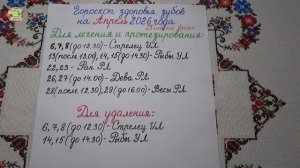 Гороскоп здоровья зубов
на Апрель 2026 года
Для лечения и протезирования:
6, 7, 8 (до 12.30) - Стрелец УЛ
13 (после 13.00), 14, 15 (до 14.30) - Рыбы УЛ
22, 23 - Рак РЛ
26, 27 (до 14.00) - Дева РЛ
28 (после 12.30), 29 (до 16.00) - Весы РЛ
Для удаления:
6, 7, 8 (до 12.30) - Стрелец УЛ
14, 15 (до 14.30) - Рыбы УЛ